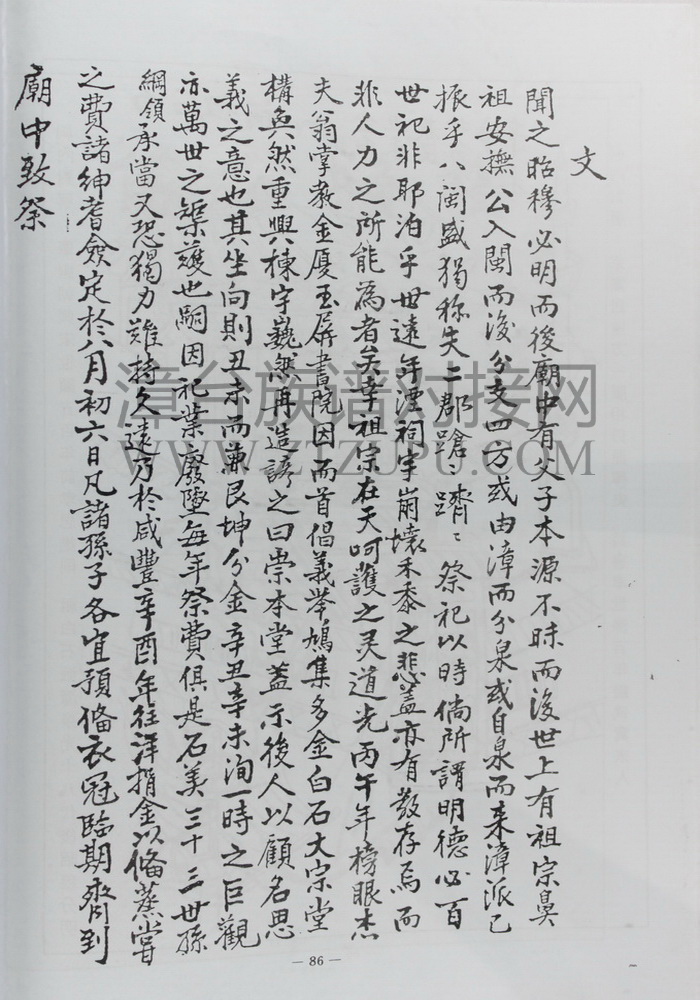 文
聞之昭穆必明而後廟中有父子本源不昧而後世上有祖宗鼻
祖安撫公入閩而後分支四方或由漳而分泉或自泉而来漳派已
振乎八閩盛獨称失二郡蹌〻蹡〻祭祀以時倘所謂明德必百
世祀非耶洎乎世遠年湮祠宇崩壞禾黍之悲蓋亦有数存焉而
非人力之所能為者矣幸祖宗在天呵護之灵道光丙午年榜眼杰
夫翁掌教金厦玉屏書院因而首倡義举鳩集多金白石大宗堂
構奐然重興棟宇巍然再造諺之曰崇本堂蓋示後人以顧名思
義之意也其坐向則丑未而兼艮坤分金辛丑辛未洵一時之巨觀
亦萬世之榘矱也嗣因祀業廢墜每年祭費俱是石美三十三世孫
綱領承當又恐獨力難持久遠乃於咸豐辛酉年往洋捐金以備蒸嘗
之費諸紳耆僉定於八月初六日凡諸孫子各宜預備衣冠臨期齊到
廟中致祭
漳台族谱对接网
WWW.ZTZUPU.COM
— 86 —